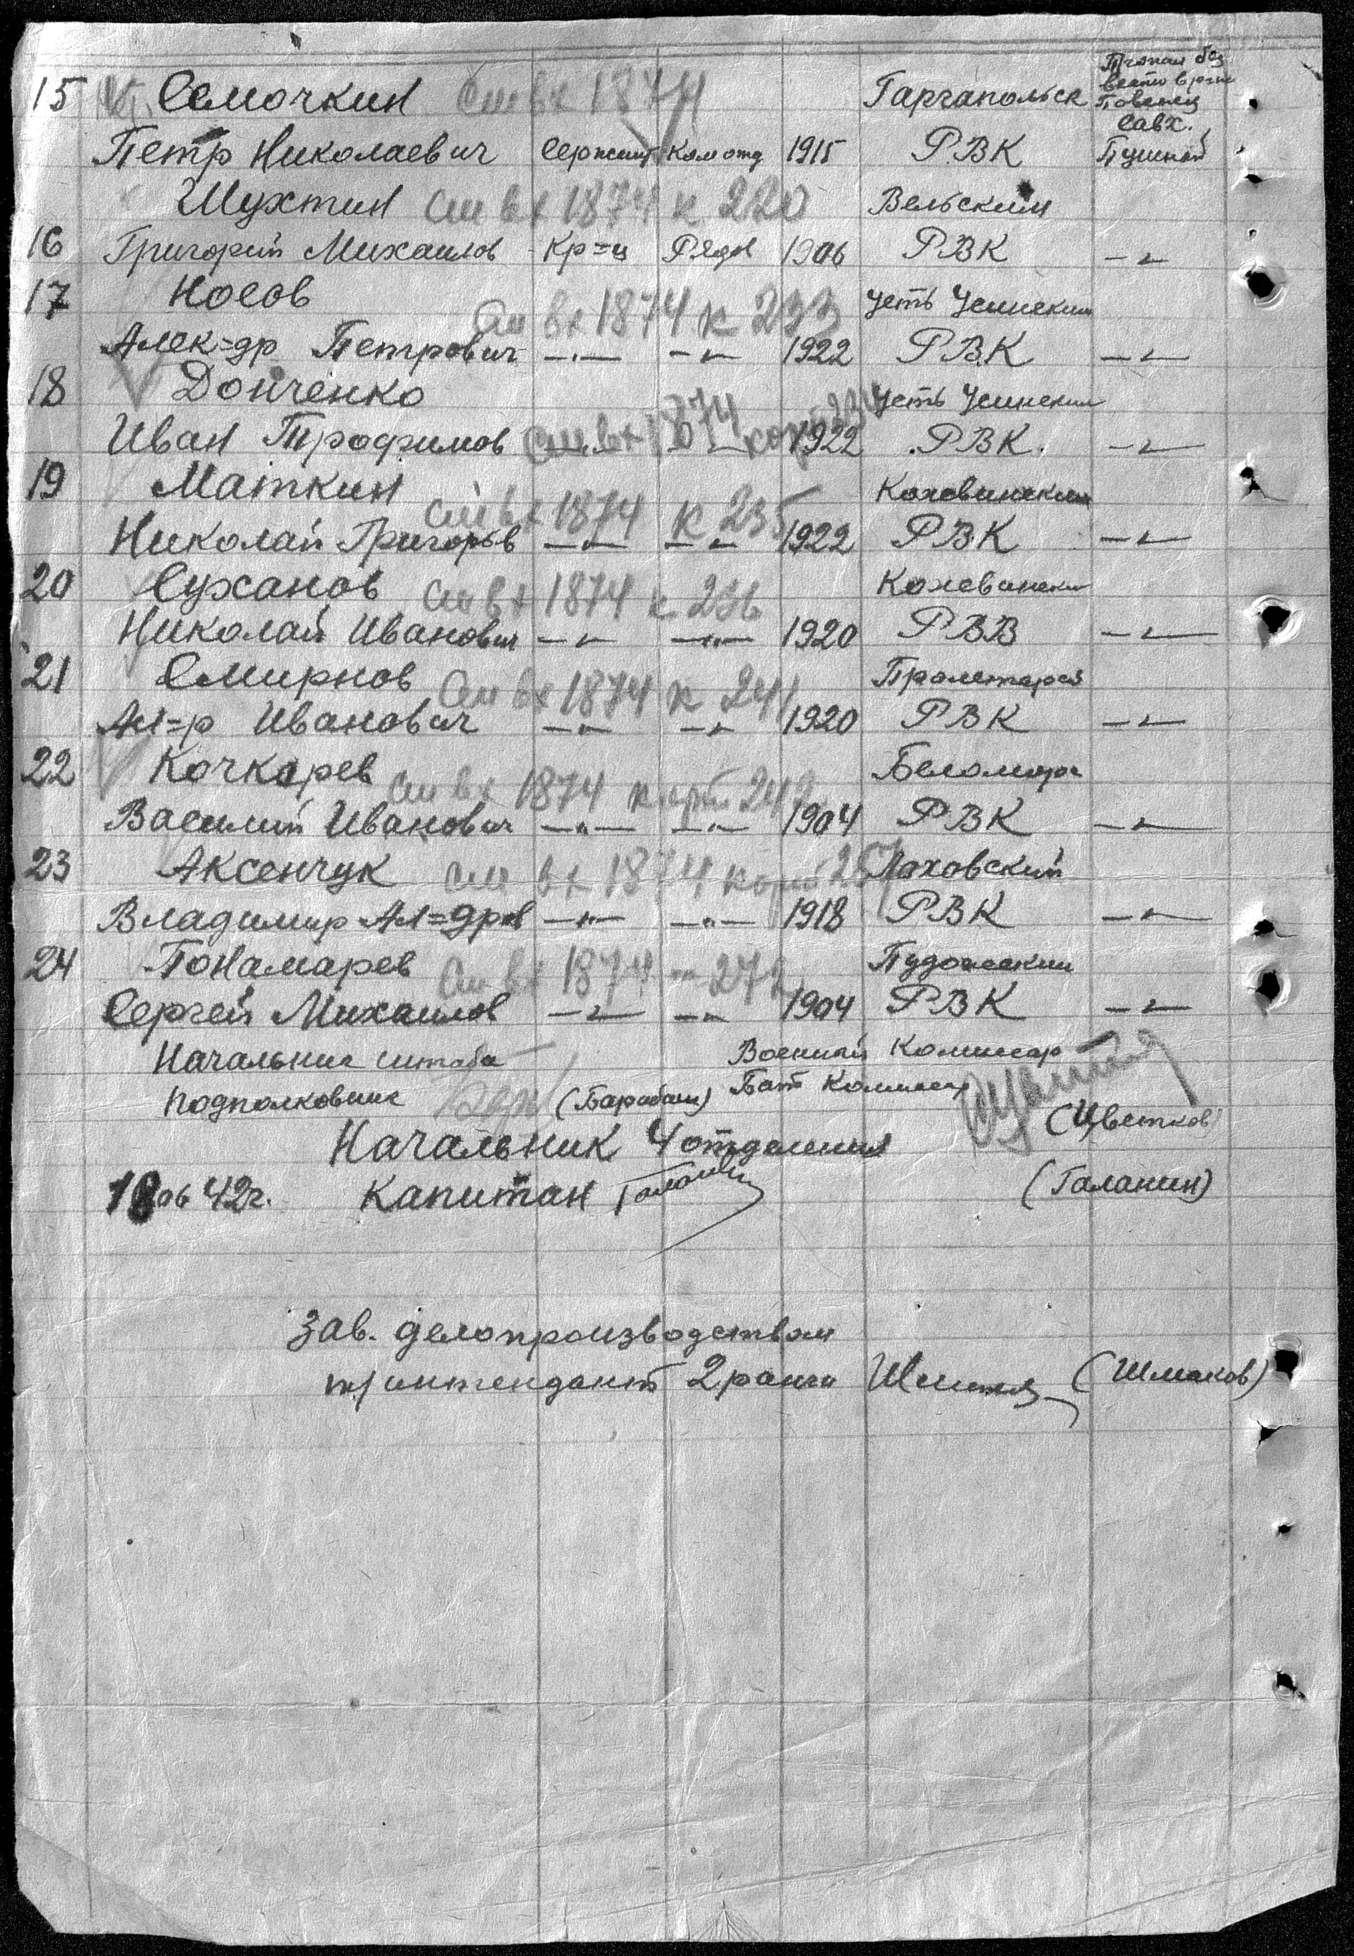 15 Семочкин См вх 1874 Гаргапольск Пропал без
вести в р-не
Повенец
Савх.
Петр Николаевич Сержант Ком отд 1915 РВК Пушной
Шухтин См вх 1874 к 220 Вельский
16 Григорий Михайлов Кр=ц Рядов 1906 РВК -"-
17 Носов См вх 1874 к 233 Усть Усинский
Алек=др Петрович -"- -"- 1922 РВК -"-
18 Донченко Усть Усинский
Иван Трофимов См. вх 1874 карт 234 1922 РВК. -"-
19 Маткин См вх 1874 к 235 Кожвинский
Николай Григорьв -"- -"- 1922 РВК -"-
20 Суханов См вх 1874 к 236 Кожевински
Николай Иванович -"- -"- 1920 РВВ -"-
21 Смирнов См вх 1874 к 241 Пролетарск
Ал=р Иванович -"- -"- 1920 РВК -"-
22 Кочкарев См вх 1874 карт 242 Беломорс
Василий Иванович -"- -"- 1904 РВК -"-
23 Аксенчук См вх 1874 карт 257 Лаховский
Владимир Ал=дров -"- -"- 1918 РВК -"-
24 Понамарев См вх 1874 -"- 272 Пудожский
Сергей Михайлов -"- -"- 1904 РВК -"-
Начальник штаба Военный Комиссар
Подполковник (Барабаш) Бат Комиссар
(Цветков)
Начальник 4 отделения
18 06 42г. Капитан (Галанин)
Зав. делопроизводством
т/интендант 2 ранга (Шмаков)